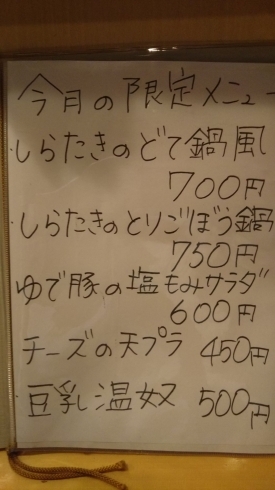 今月の限定メニュー
・しらたきのどて鍋風
700円
・しらたきのとりごぼう鍋
750円
・ゆで豚の塩もみサラダ
600円
・チーズの天プラ 450円
・豆乳温奴 500円